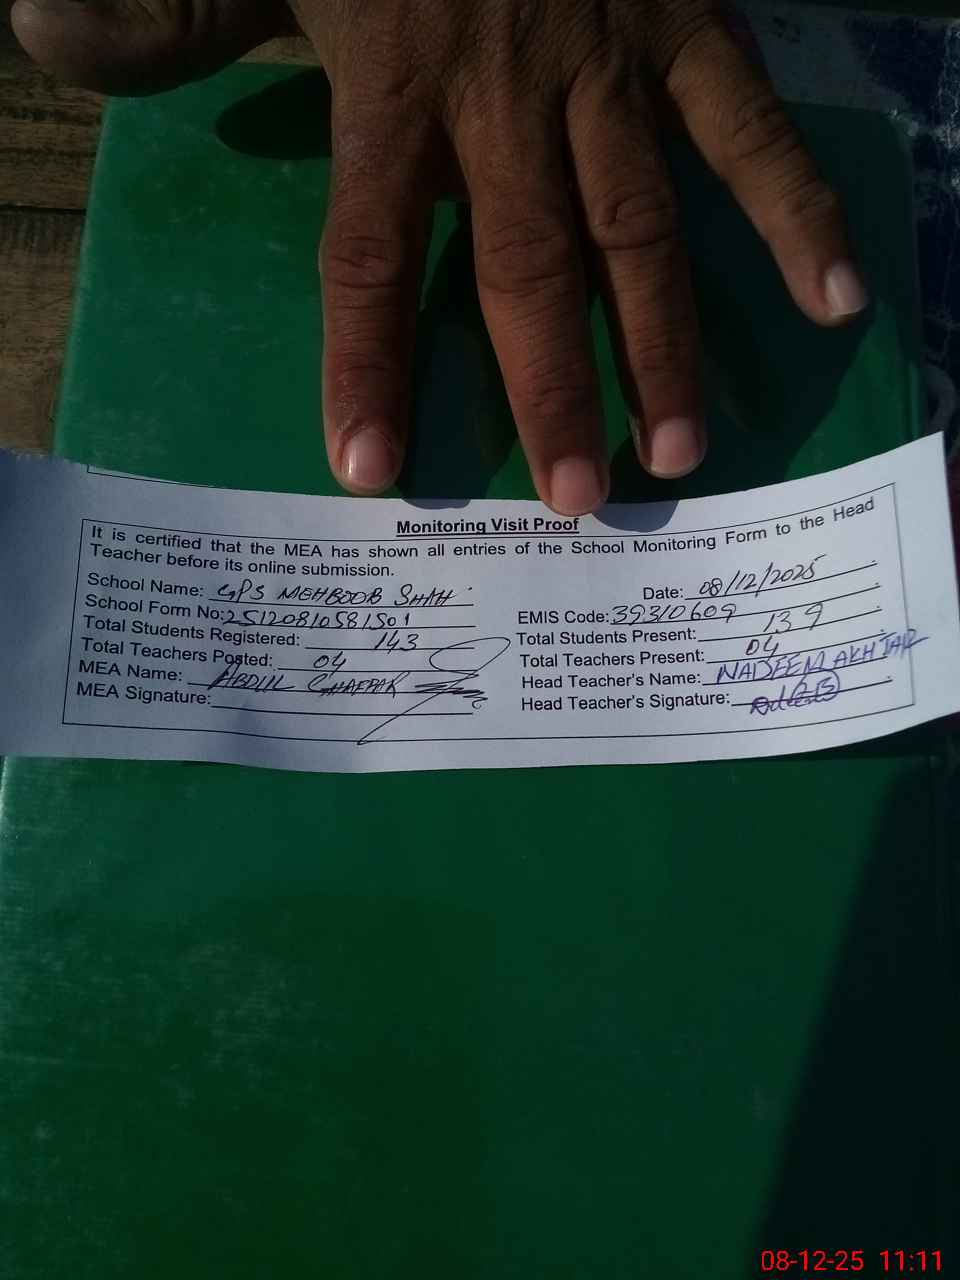 Monitoring Visit Proof
It is certified that the MEA has shown all entries of the School Monitoring Form to the Head
Teacher before its online submission.
School Name: GPS MEHBOOB SHAH
Date: 08/12/2025
School Form No: 25120810581501
EMIS Code: 39310609
Total Students Registered: 143
Total Students Present: 139
Total Teachers Posted: 04
Total Teachers Present: 04
MEA Name: ABDUL GHAFFAR
Head Teacher's Name: NADEEM AKHTAR
MEA Signature:
Head Teacher's Signature:
08-12-25 11:11